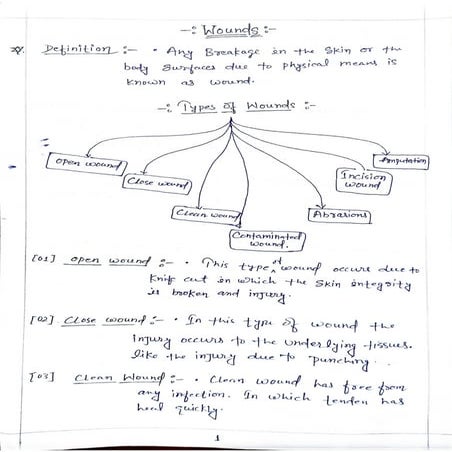 -: Wounds :-
Definition :- • Any Breakage in the Skin or the
body Surfaces due to physical means is
known as wound.
-: Types of Wounds :-
Open wound
Close wound
Clean wound
Contaminated
wound.
Abrasions
Incision
wound
Amputation
[01] Open wound :- • This type of wound occure due to
Knife cut in which the Skin integrity
is broken and injury.
[02] Close wound :- • In this type of wound the
injury occurs to the underlying tissues.
like the injury due to punching.
[03] Clean Wound :- • Clean wound has free from
any infection. In which tenden has
heal quickly.
1